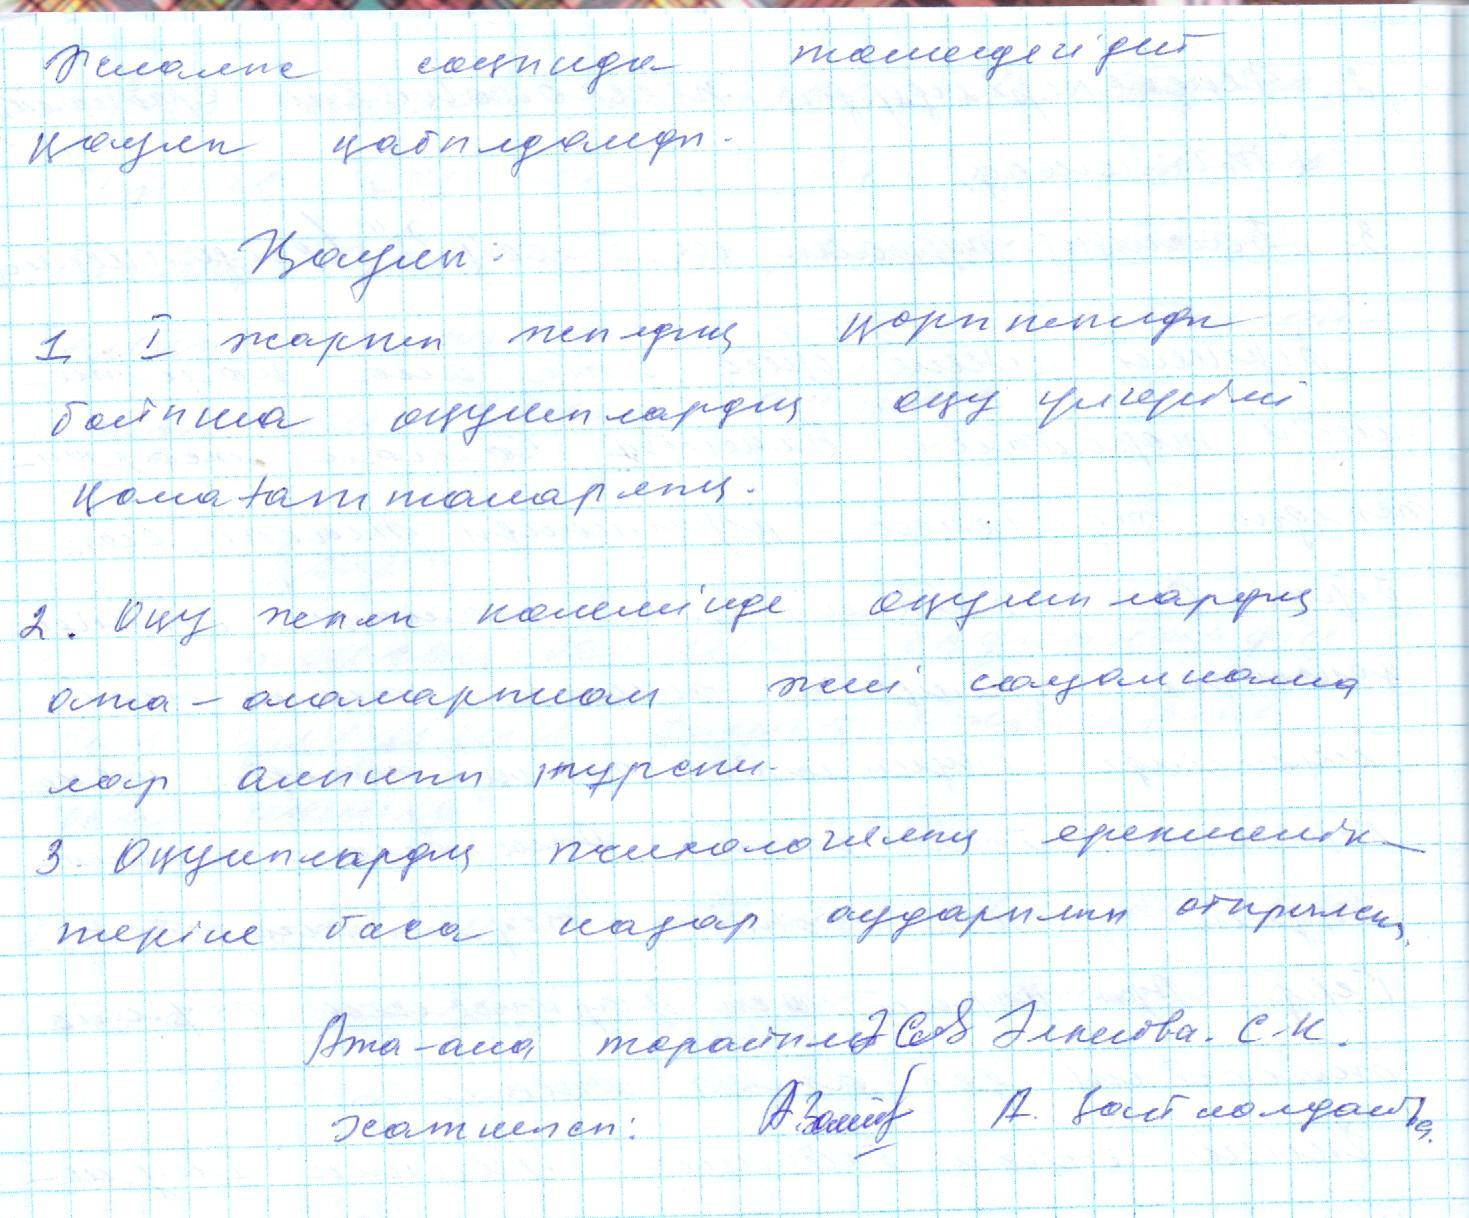 Жиналыс соңында төмендегідей
қаулы қабылданды.
Қаулы:
1. I жарты жылдық қорытынды
бойынша оқушылардың оқу үлгерімі
қанағаттанарлық.
2. Оқу жылы көлемінде оқушылардың
ата-аналарымен жиі сауалнама
лар алынып тұрсын.
3. Оқушылардың психологиялық ерекшелік-
теріне баса назар аударылып отырылсын.
Ата-ана төрайымы С.К.
Хатшысы: А.